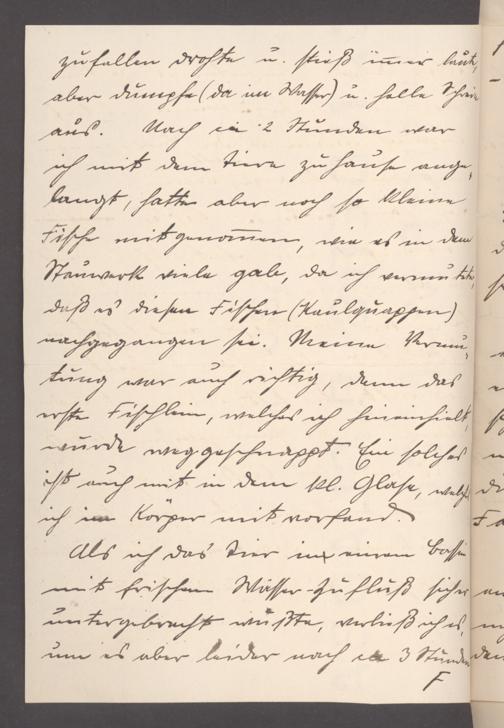 zufallen drohte u. stieß immer laute,
aber dumpfe (da im Wasser) u. helle Schreie
aus. Nach ca 2 Stunden war
ich mit dem Tiere zuhause ange-
langt, hatte aber noch so kleine
Fische mitgenommen, wie es in dem
Stauwerk viele gab, da ich vermutete,
daß es diesen Fischen (Kaulquappen)
nachgegangen sei. Meine Vermu-
tung war auch richtig, denn das
erste Fischlein, welches ich hineinhielt,
wurde weggeschnappt. Ein solches
ist auch mit in dem kl. Glase, welches
ich im Körper mit vorfand.
Als ich das Tier in einem Bassin
mit frischem Wasser-Zufluß sicher
untergebracht wußte, verließ ich es,
um es aber leider nach ca 3 Stunden